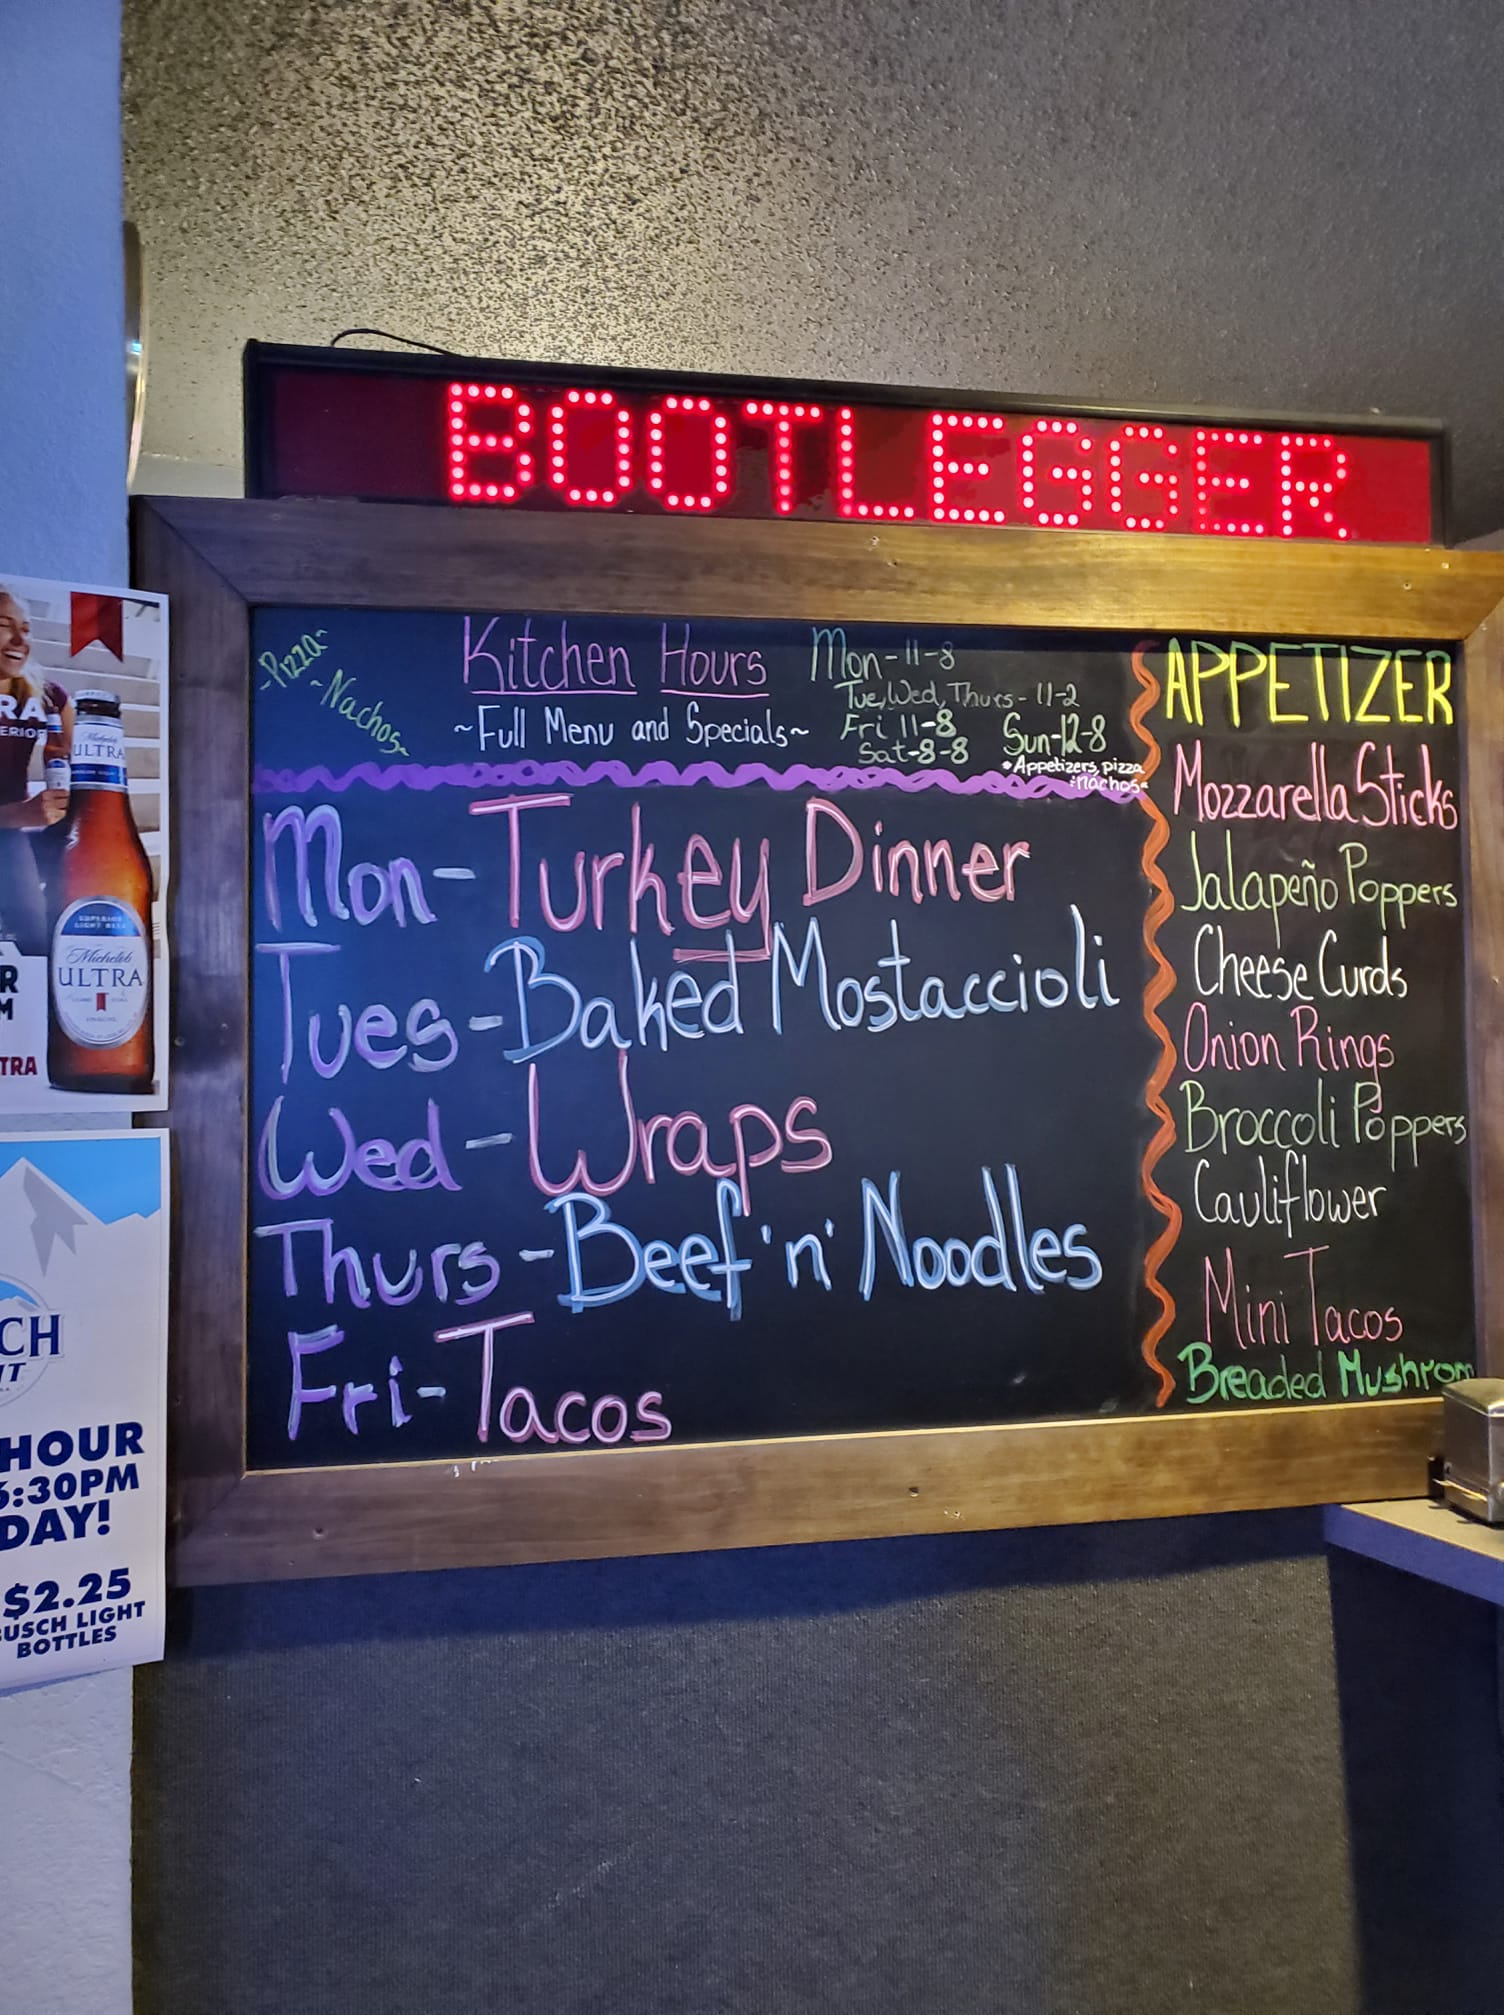 BOOTLEGGER
~Pizza~
~Nachos~
Kitchen Hours
~Full Menu and Specials~
Mon-11-8
Tue, Wed, Thurs-11-2
Fri 11-8
Sat-8-8
Sun-12-8
*Appetizers, pizza
nachos*
Mon-Turkey Dinner
Tues-Baked Mostaccioli
Wed-Wraps
Thurs-Beef 'n' Noodles
Fri-Tacos
APPETIZER
Mozzarella Sticks
Jalapeño Poppers
Cheese Curds
Onion Rings
Broccoli Poppers
Cauliflower
Mini Tacos
Breaded Mushrom
RA
ERIOR
Michelob
ULTRA
SUPERIOR
LIGHT BEER
Michelob
ULTRA
A
R
M
TRA
CH
HT
HOUR
6:30PM
DAY!
$2.25
BUSCH LIGHT
BOTTLES